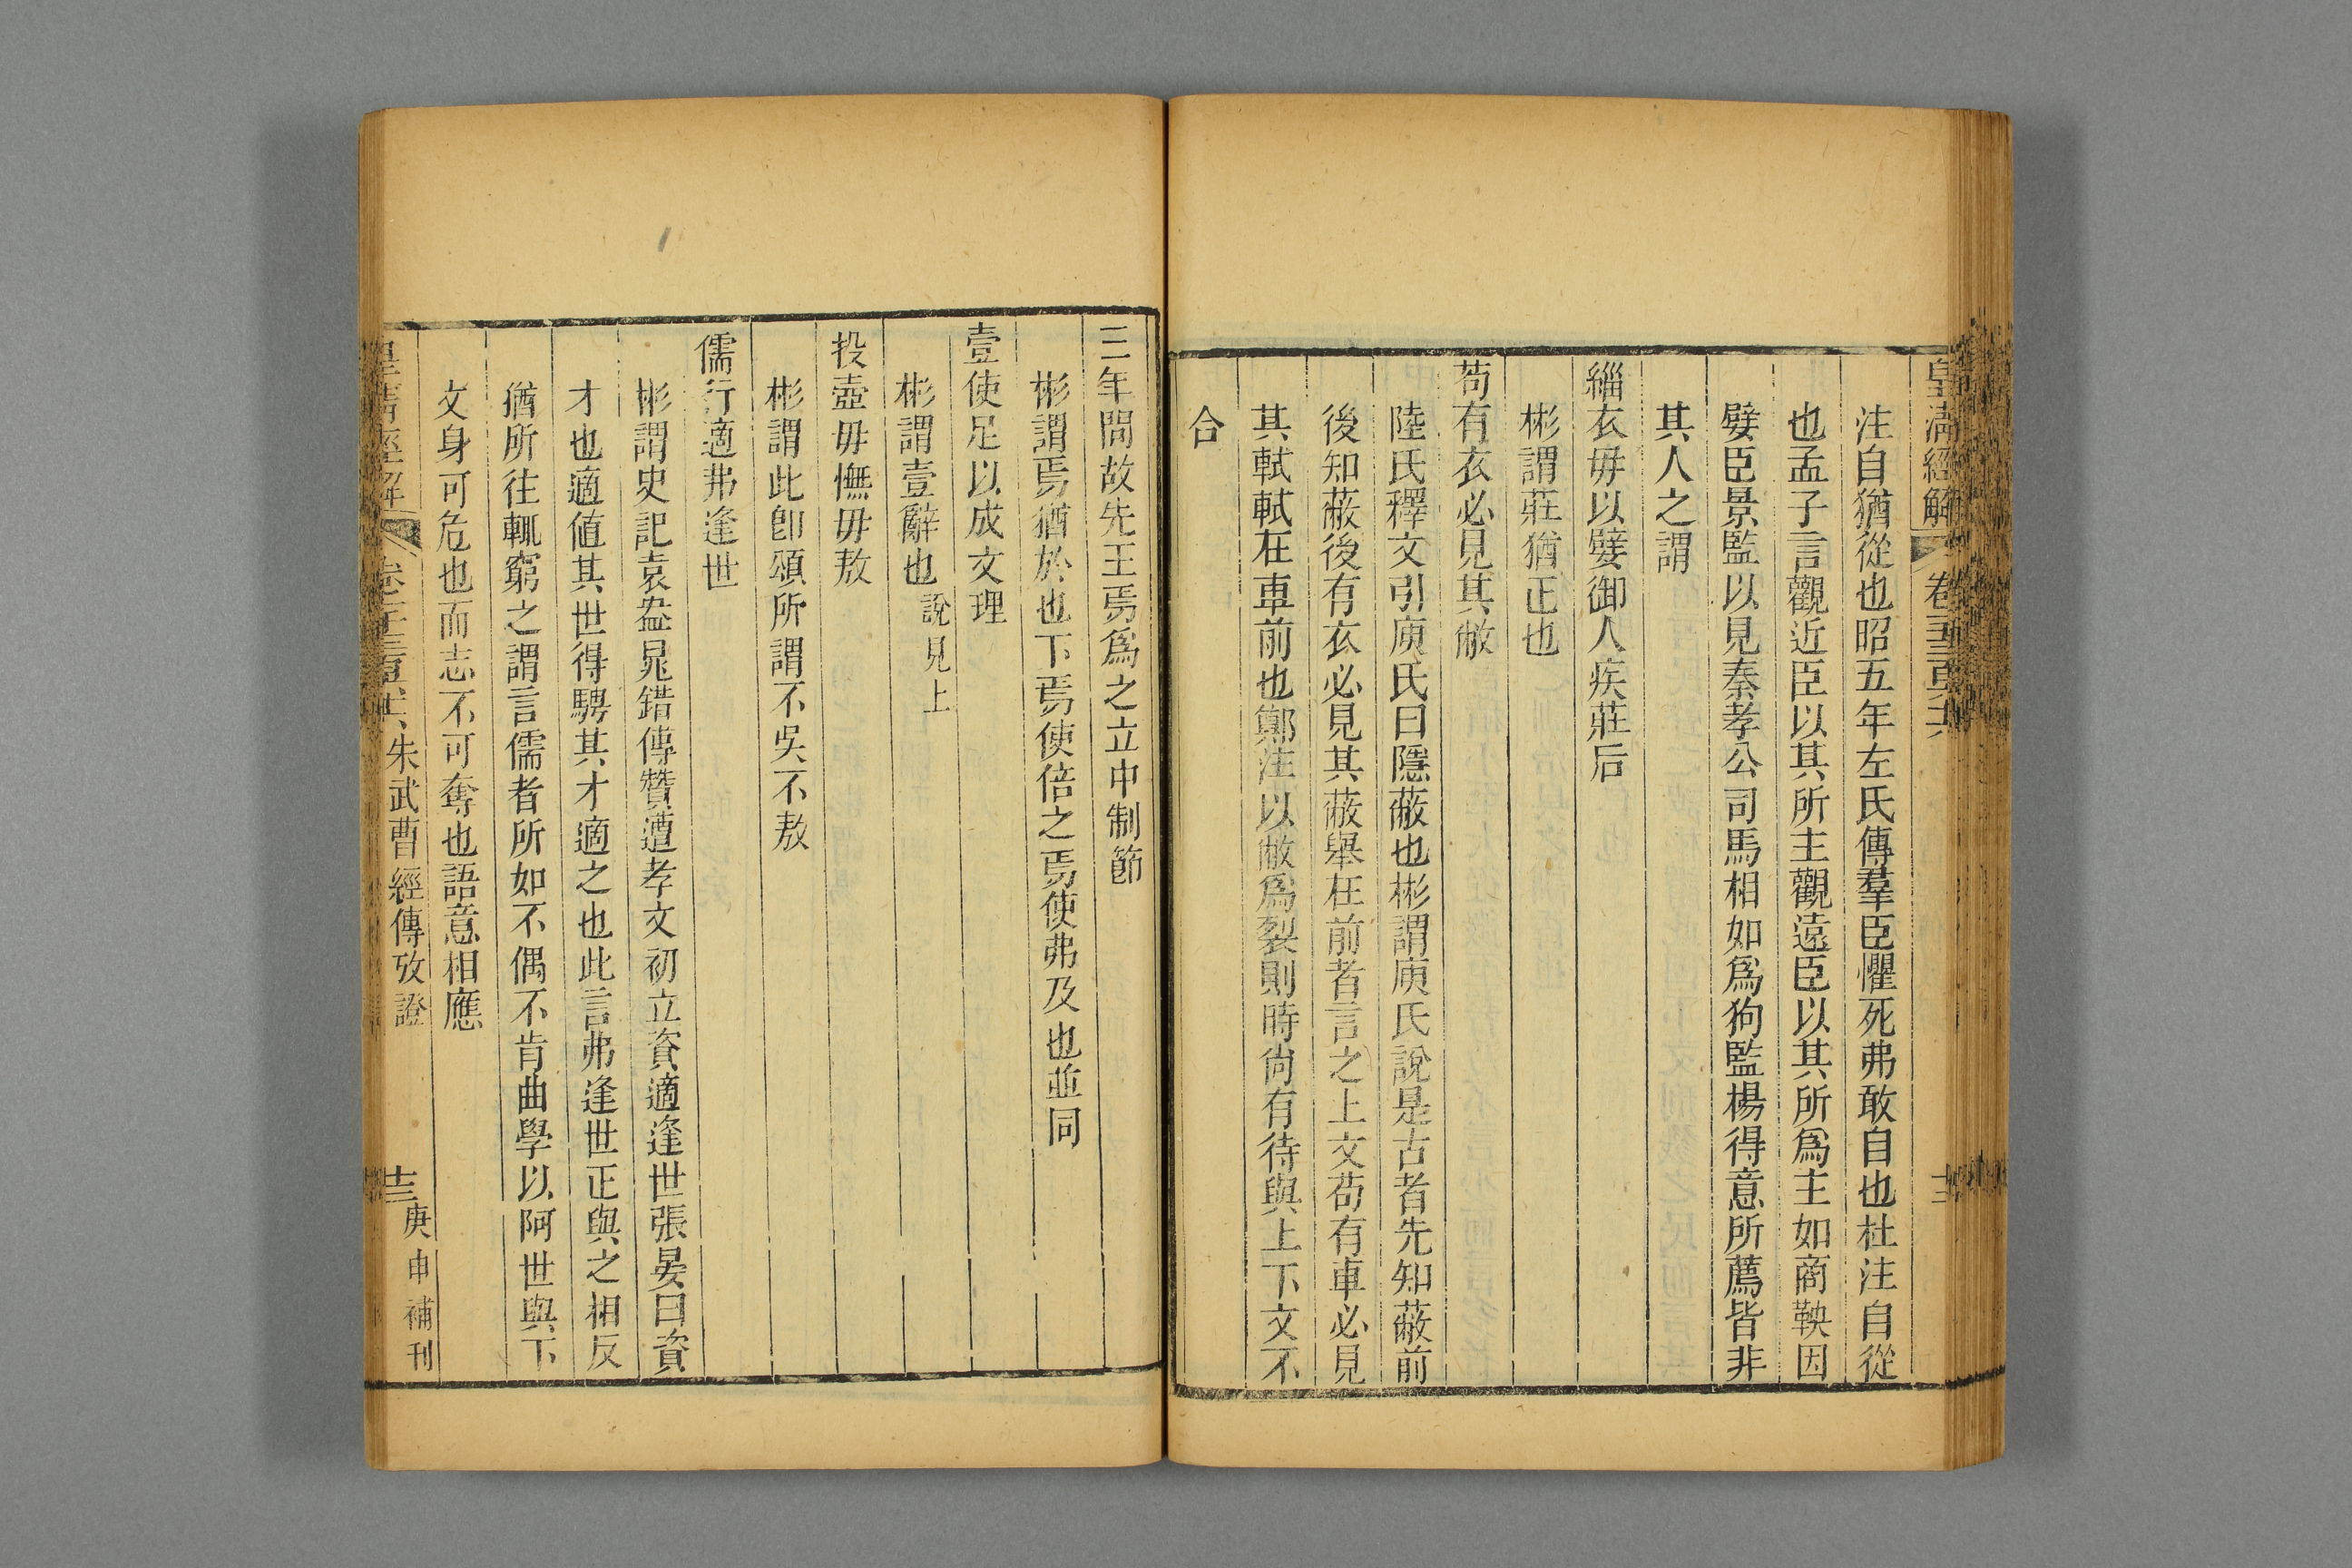 皇清經解
注自猶從也昭五年左氏傳羣臣懼死弗敢自也杜注自從
也孟子言觀近臣以其所主觀遠臣以其所爲主如商鞅因
嬖臣景監以見秦孝公司馬相如爲狗監楊得意所薦皆非
其人之謂
緇衣毋以嬖御人疾莊后
彬謂莊猶正也
苟有衣必見其敝
陸氏釋文引庾氏曰隱蔽也彬謂庾氏說是古者先知蔽前
後知蔽後有衣必見其蔽舉在前者言之上文苟有車必見
其軾軾在車前也鄭注以敝爲裂則時尙有待與上下文不
合
三年問故先王焉爲之立中制節
彬謂焉猶於也下焉使倍之焉使弗及也並同
壹使足以成文理
彬謂壹辭也說見上
投壺毋憮毋敖
彬謂此卽頌所謂不吳不敖
儒行適弗逢世
彬謂史記袁盎晁錯傳贊遭孝文初立資適逢世張晏曰資
才也適値其世得騁其才適之也此言弗逢世正與之相反
猶所往輒窮之謂言儒者所如不偶不肯曲學以阿世與下
文身可危也而志不可奪也語意相應
皇清經解 朱武曹經傳攷證 十三 庚申補刊